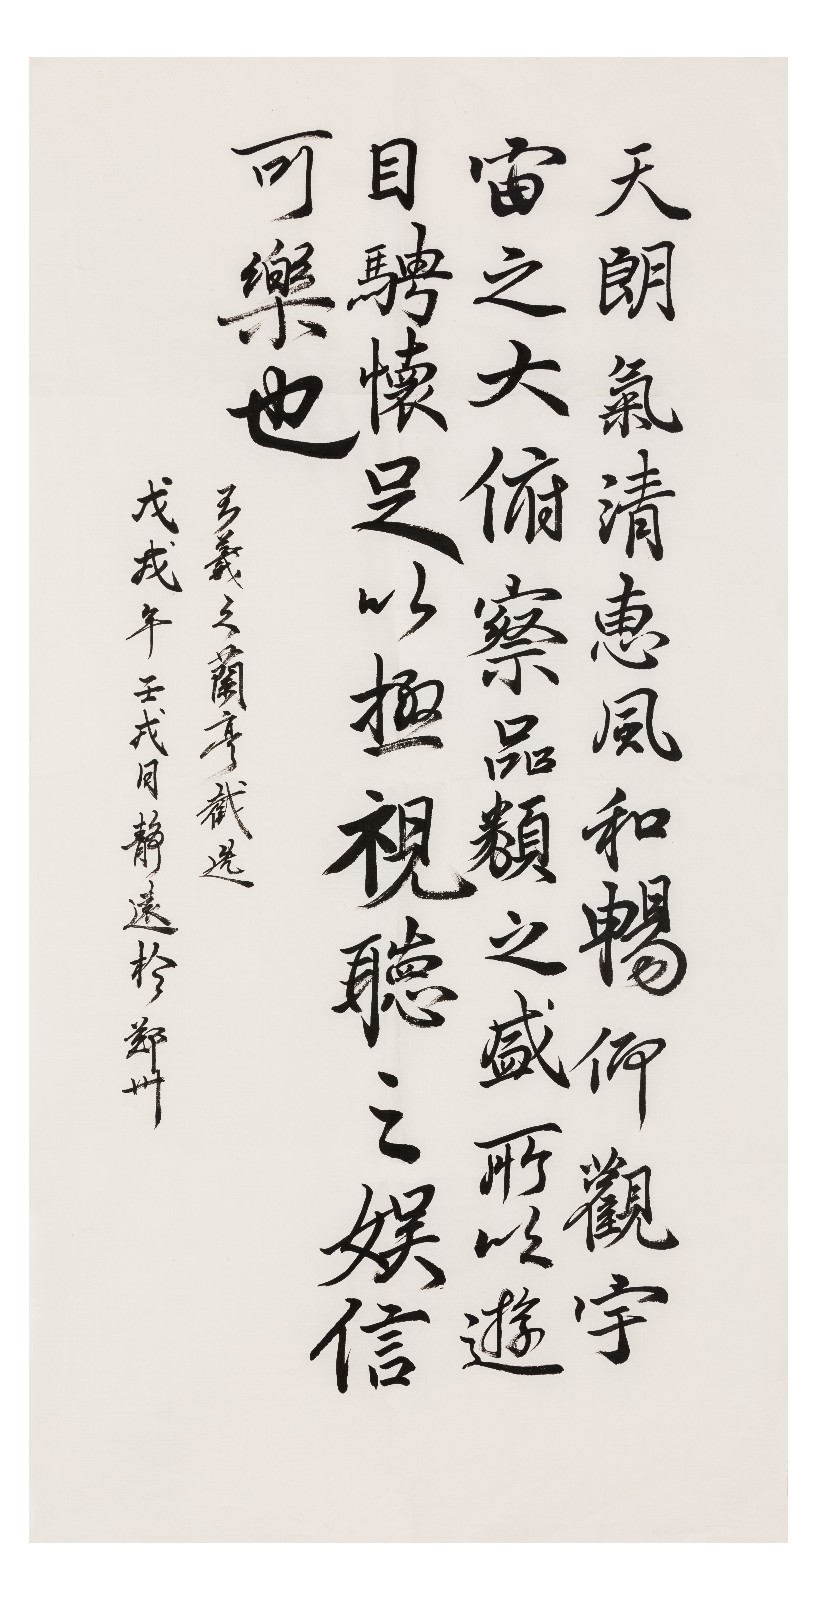 天朗氣清惠風和暢仰觀宇
宙之大俯察品類之盛所以遊
目騁懷足以極視聽之娛信
可樂也
王羲之蘭亭截選
戊戌年壬戌月靜遠於鄭州